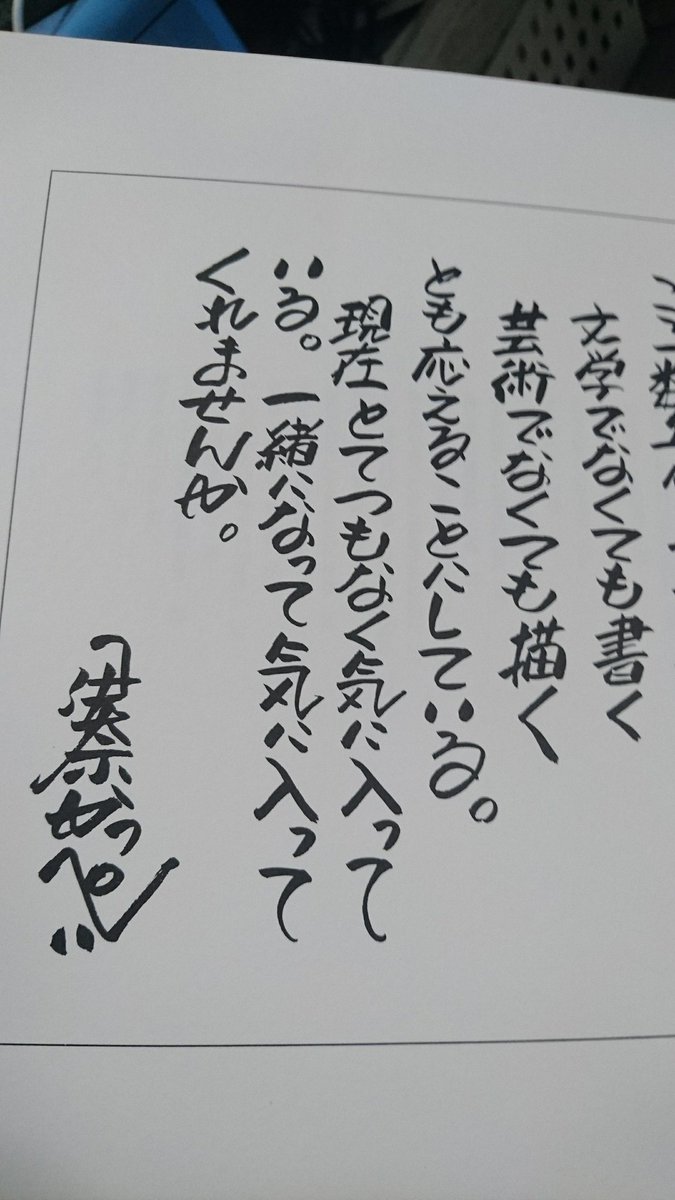 文学でなくても書く
芸術でなくても描く
とも応えることにしている。
現在とてつもなく気に入って
いる。一緒になって気に入って
くれませんか。
伊奈かっぺい